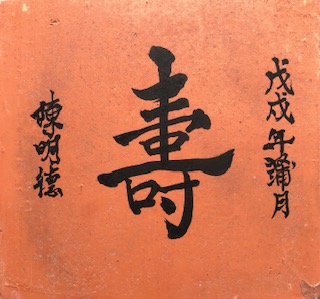 戊戌年蒲月
壽
陳明德